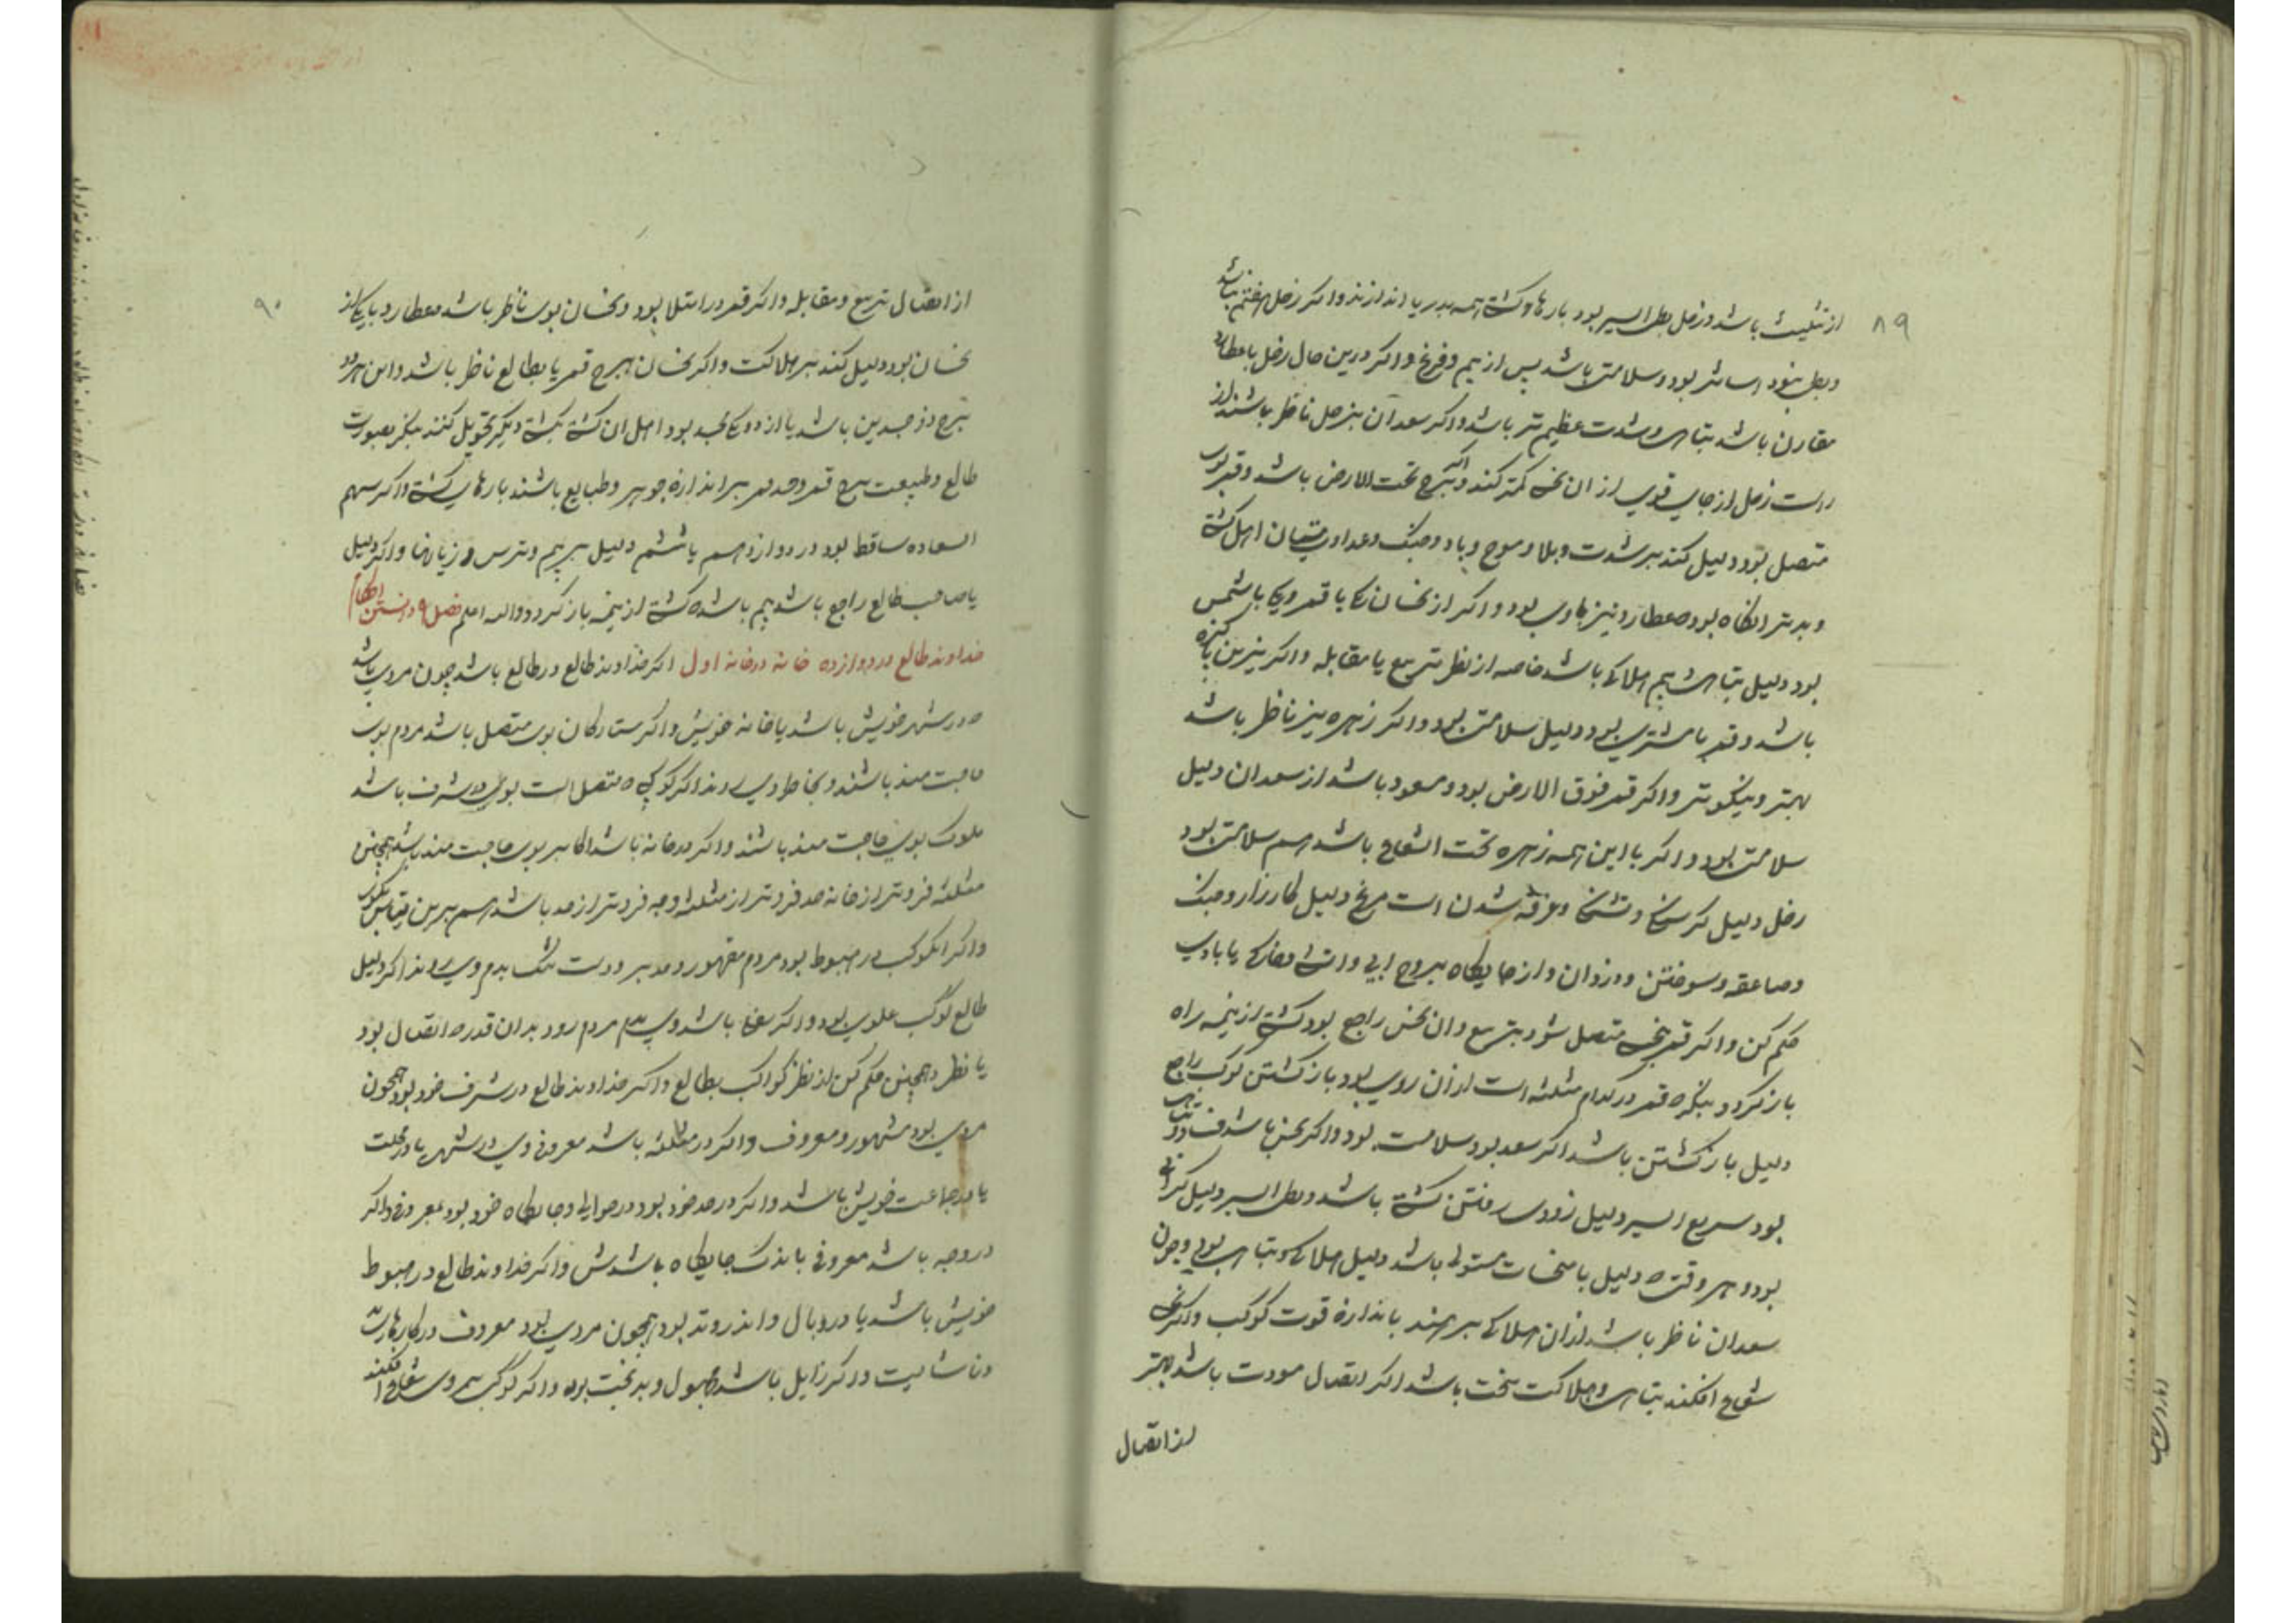 ۸۹
از تثلیث باشد و زحل بطی السیر بود بارهاء کشتی همه بدریا اندازند و اگر زحل هفتم نباشد
و بطی نبود اسانتر بود و سلامتی باشد پس از بیم و فزع و اگر درین حال زحل با عطارد
مقارن باشد تباهی و شدت عظیم تر باشد و اگر سعدان بزحل ناظر باشند از
راست زحل از جای قوی از ان نحس کمتر کند و اگر ببرج تحت الارض باشد و قمر بوی
متصل بود دلیل کند بر شدت و بلا و موج و باد و جنگ و عداوت میان اهل کشتی
و بدتر انگاه بود که عطارد نیز با وی بود و اگر از نحسان یکی با قمر و یکی با شمس
بود دلیل تباهی بیم هلاکی باشد خاصه از نظر تربیع یا مقابله و اگر نیرین پاکیزه
باشد و قمر با مشتری بود دلیل سلامتی بود و اگر زهره نیز ناظر باشد
بهتر و نیکوتر و اگر قمر فوق الارض بود و مسعود باشد از سعدان دلیل
سلامتی بود و اگر با این همه زهره تحت الشعاع باشد هم سلامتی بود
زحل دلیل گرسنگی و تشنگی و غرقه شدن است مریخ دلیل کارزار و جنگ
و صاعقه و سوختن و دزدان و از جایگاه بروج ابی و اتشی و خاکی یا بادی
حکم کن و اگر قمر بنحس متصل شود بتربیع و ان نحس راجع بود کشتی از نیمه راه
باز گردد بنگر که قمر در کدام مثلثه است از ان روی بود باز گشتن کوکب راجع
دلیل باز گشتن باشد اگر سعد بود سلامت بود و اگر نحس باشد فساد و تباهی
بود سریع السیر دلیل زودی رفتن کشتی باشد و بطی السیر دلیل گرانی
بود و هر وقت که دلیل با منحسات مستولی باشد دلیل هلاکی و تباهی بود و چون
سعدان ناظر باشد از ان هلاکی برهند باندازه قوت کوکب و اگر نحس
شعاع افکند تباهی و هلاکت سخت باشد اگر اتصال مودت باشد بهتر
از اتصال
۹۰
از اتصال تربیع و مقابله و اگر قمر در امتلا بود و نحسان بوی ناظر باشد و عطارد با یکی از
نحسان بود دلیل کند بر هلاکت و اگر نحسان ببرج قمر یا بطالع ناظر باشد و این هر دو
برج ذو جسدین باشد یا از دو یکی مجسد بود اهل ان کشتی بکشتی دیگر تحویل کنند بنگر بصورت
طالع و طبیعت برج قمر و حد قمر بر اندازه جوهر و طبایع باشند بارهای کشتی و اگر سهم
السعاده ساقط بود در دوازدهم یا ششم دلیل بر بیم و ترس و زیانها و اگر دلیل
یا صاحب طالع راجع باشد بیم باشد که کشتی از نیمه باز گردد والله اعلم فصل ۹ دانستن احکام
خداوند طالع در دوازده خانه در خانه اول اگر خداوند طالع در طالع باشد چون مردی باشد
که در شهر خویش باشد یا خانه خویش و اگر ستارگان بوی متصل باشد مردم بوی
حاجت مند باشند و بخاطر وی روند اگر کوکبی که متصل است بوی در شرف باشد
ملوک بوی حاجت مند باشند و اگر در خانه باشد اکابر بوی حاجت مند باشد همچنین
مثلثه فروتر از خانه حد فروتر از مثلثه وجه فروتر از حد باشد هم برین قیاس بگوی
و اگر ان کوکب در هبوط بود مردم مقهور و مدبر و دست تنگ بدم وی روند اگر دلیل
طالع کوکب علوی بود و اگر سفلی باشد وی بدم مردم رود بدان قدر که اتصال بود
یا نظر و همچنین حکم کن از نظر کواکب بطالع و اگر خداوند طالع در شرف خود بود همچون
مردی بود مشهور و معروف و اگر در مثلثه باشد معروفی وی در شهر یا در محلت
یا در جماعت خویش باشد و اگر در حد خود بود در حوالی و جایگاه خود بود معروفی و اگر
در وجه باشد معروفی باندک جایگاه باشدش و اگر خداوند طالع در هبوط
خویش باشد یا در وبال و اندر وتد بود همچون مردی بود معروف در کارهای
ناشایست و اگر زایل باشد مجهول و بدبخت بود و اگر کوکب بر وی شعاع افکند